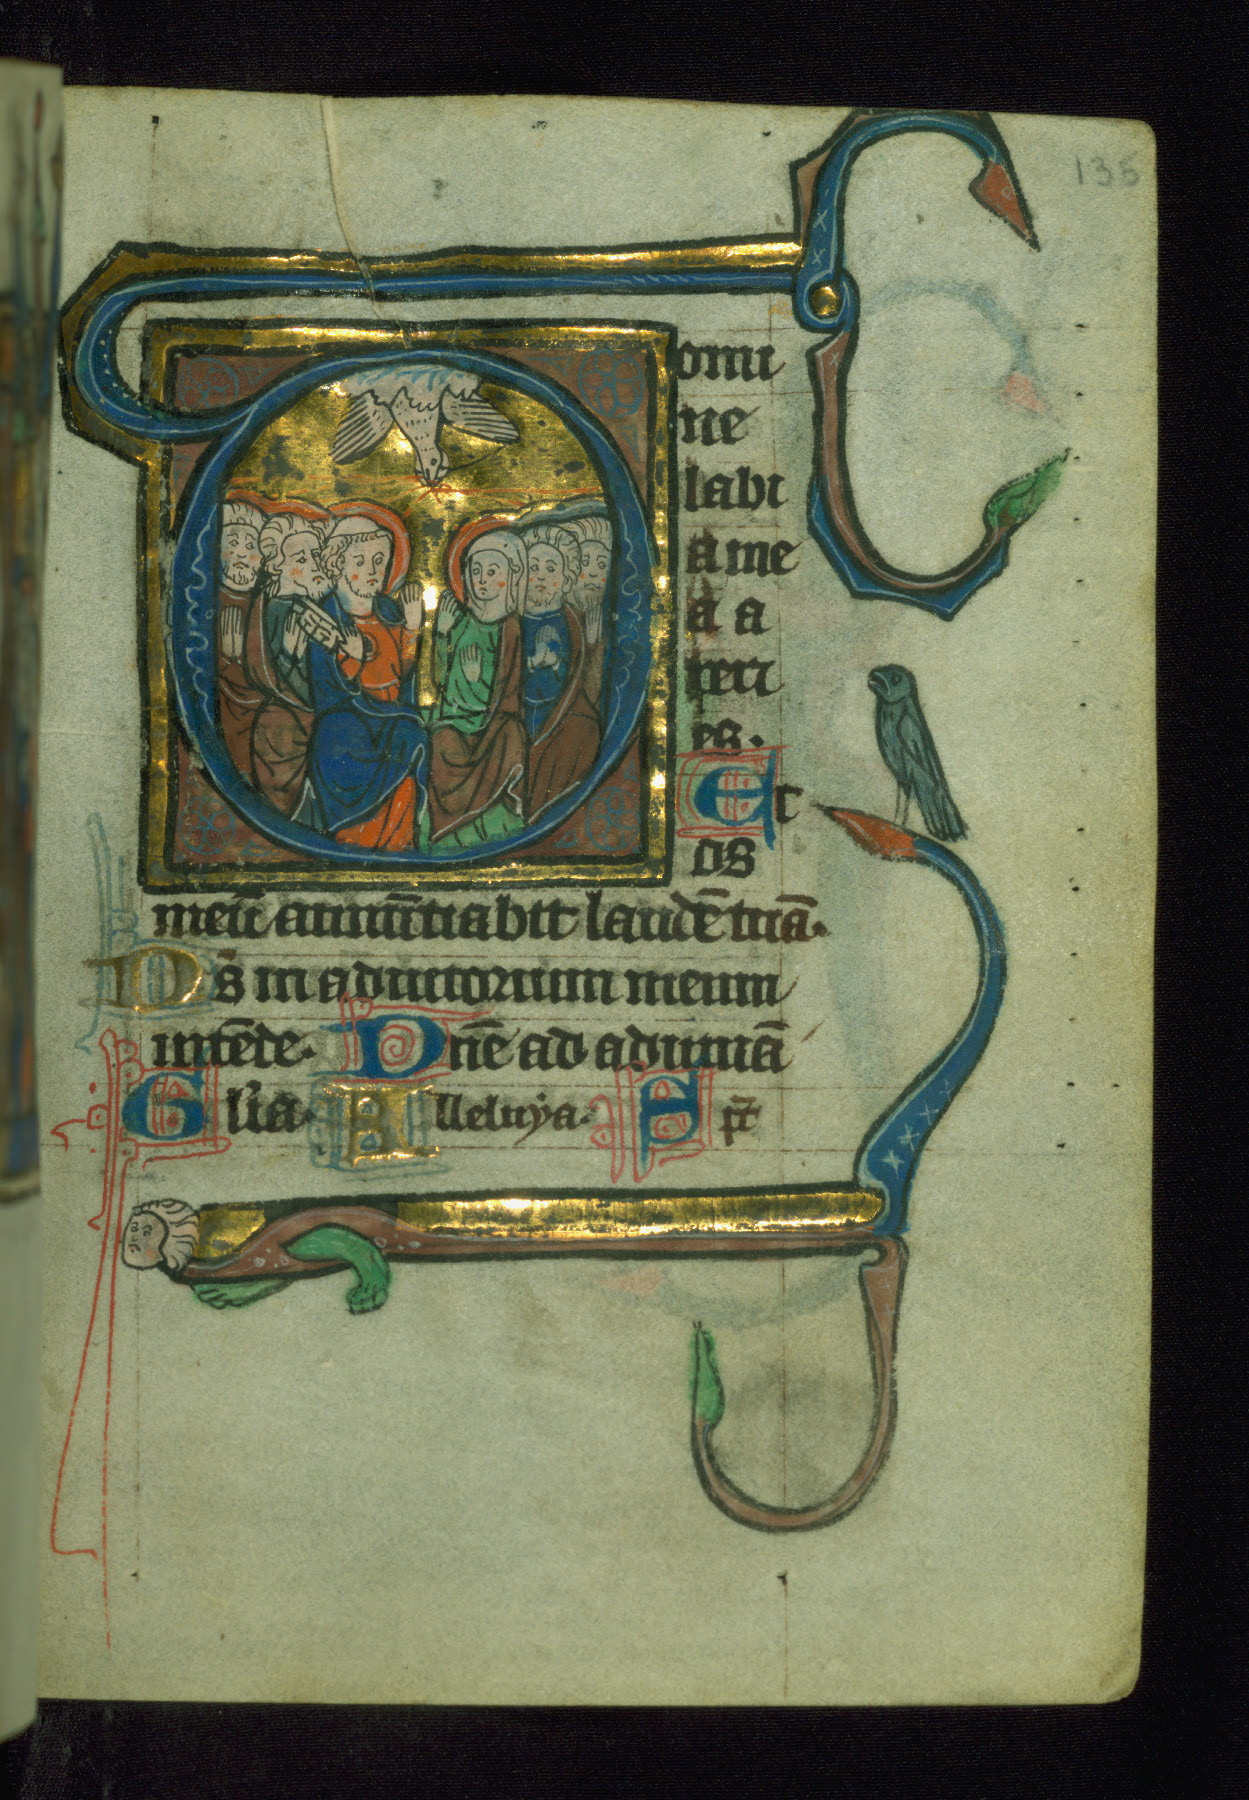 135
Domi
ne
labi
a me
a a
peri
es.
Et
os
meū annūtiabit laudē tuā.
Ds̄ in adiutorium meum
intēde. Dnē ad adiuuā
Glia. Alleluya. Ps